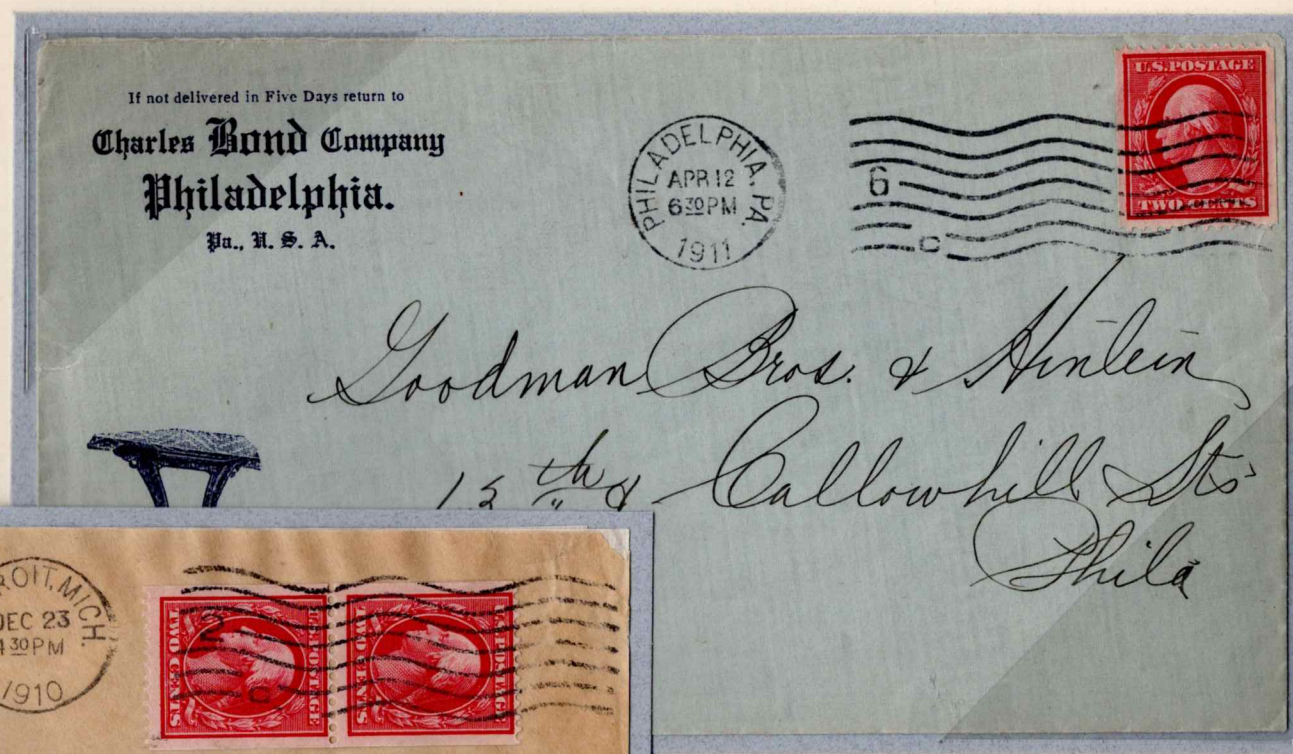 If not delivered in Five Days return to
Charles Bond Company
Philadelphia.
Pa., U. S. A.
PHILADELPHIA, PA.
APR 12
6 30 PM
1911
6
C
U.S. POSTAGE
TWO CENTS
Goodman Bros. & Hinlein
13th & Callowhill Sts
Phila
ROIT, MICH.
DEC 23
4 30 PM
1910
2
C
U.S. POSTAGE
TWO CENTS
U.S. POSTAGE
TWO CENTS